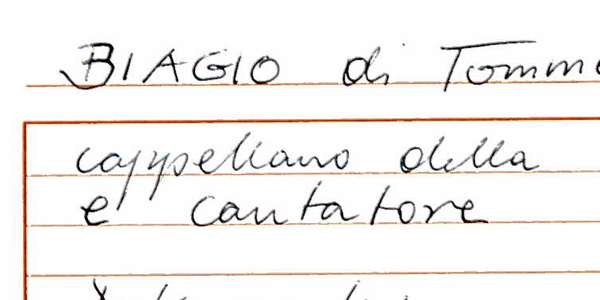 BIAGIO di Tomm
cappellano della
e cantatore